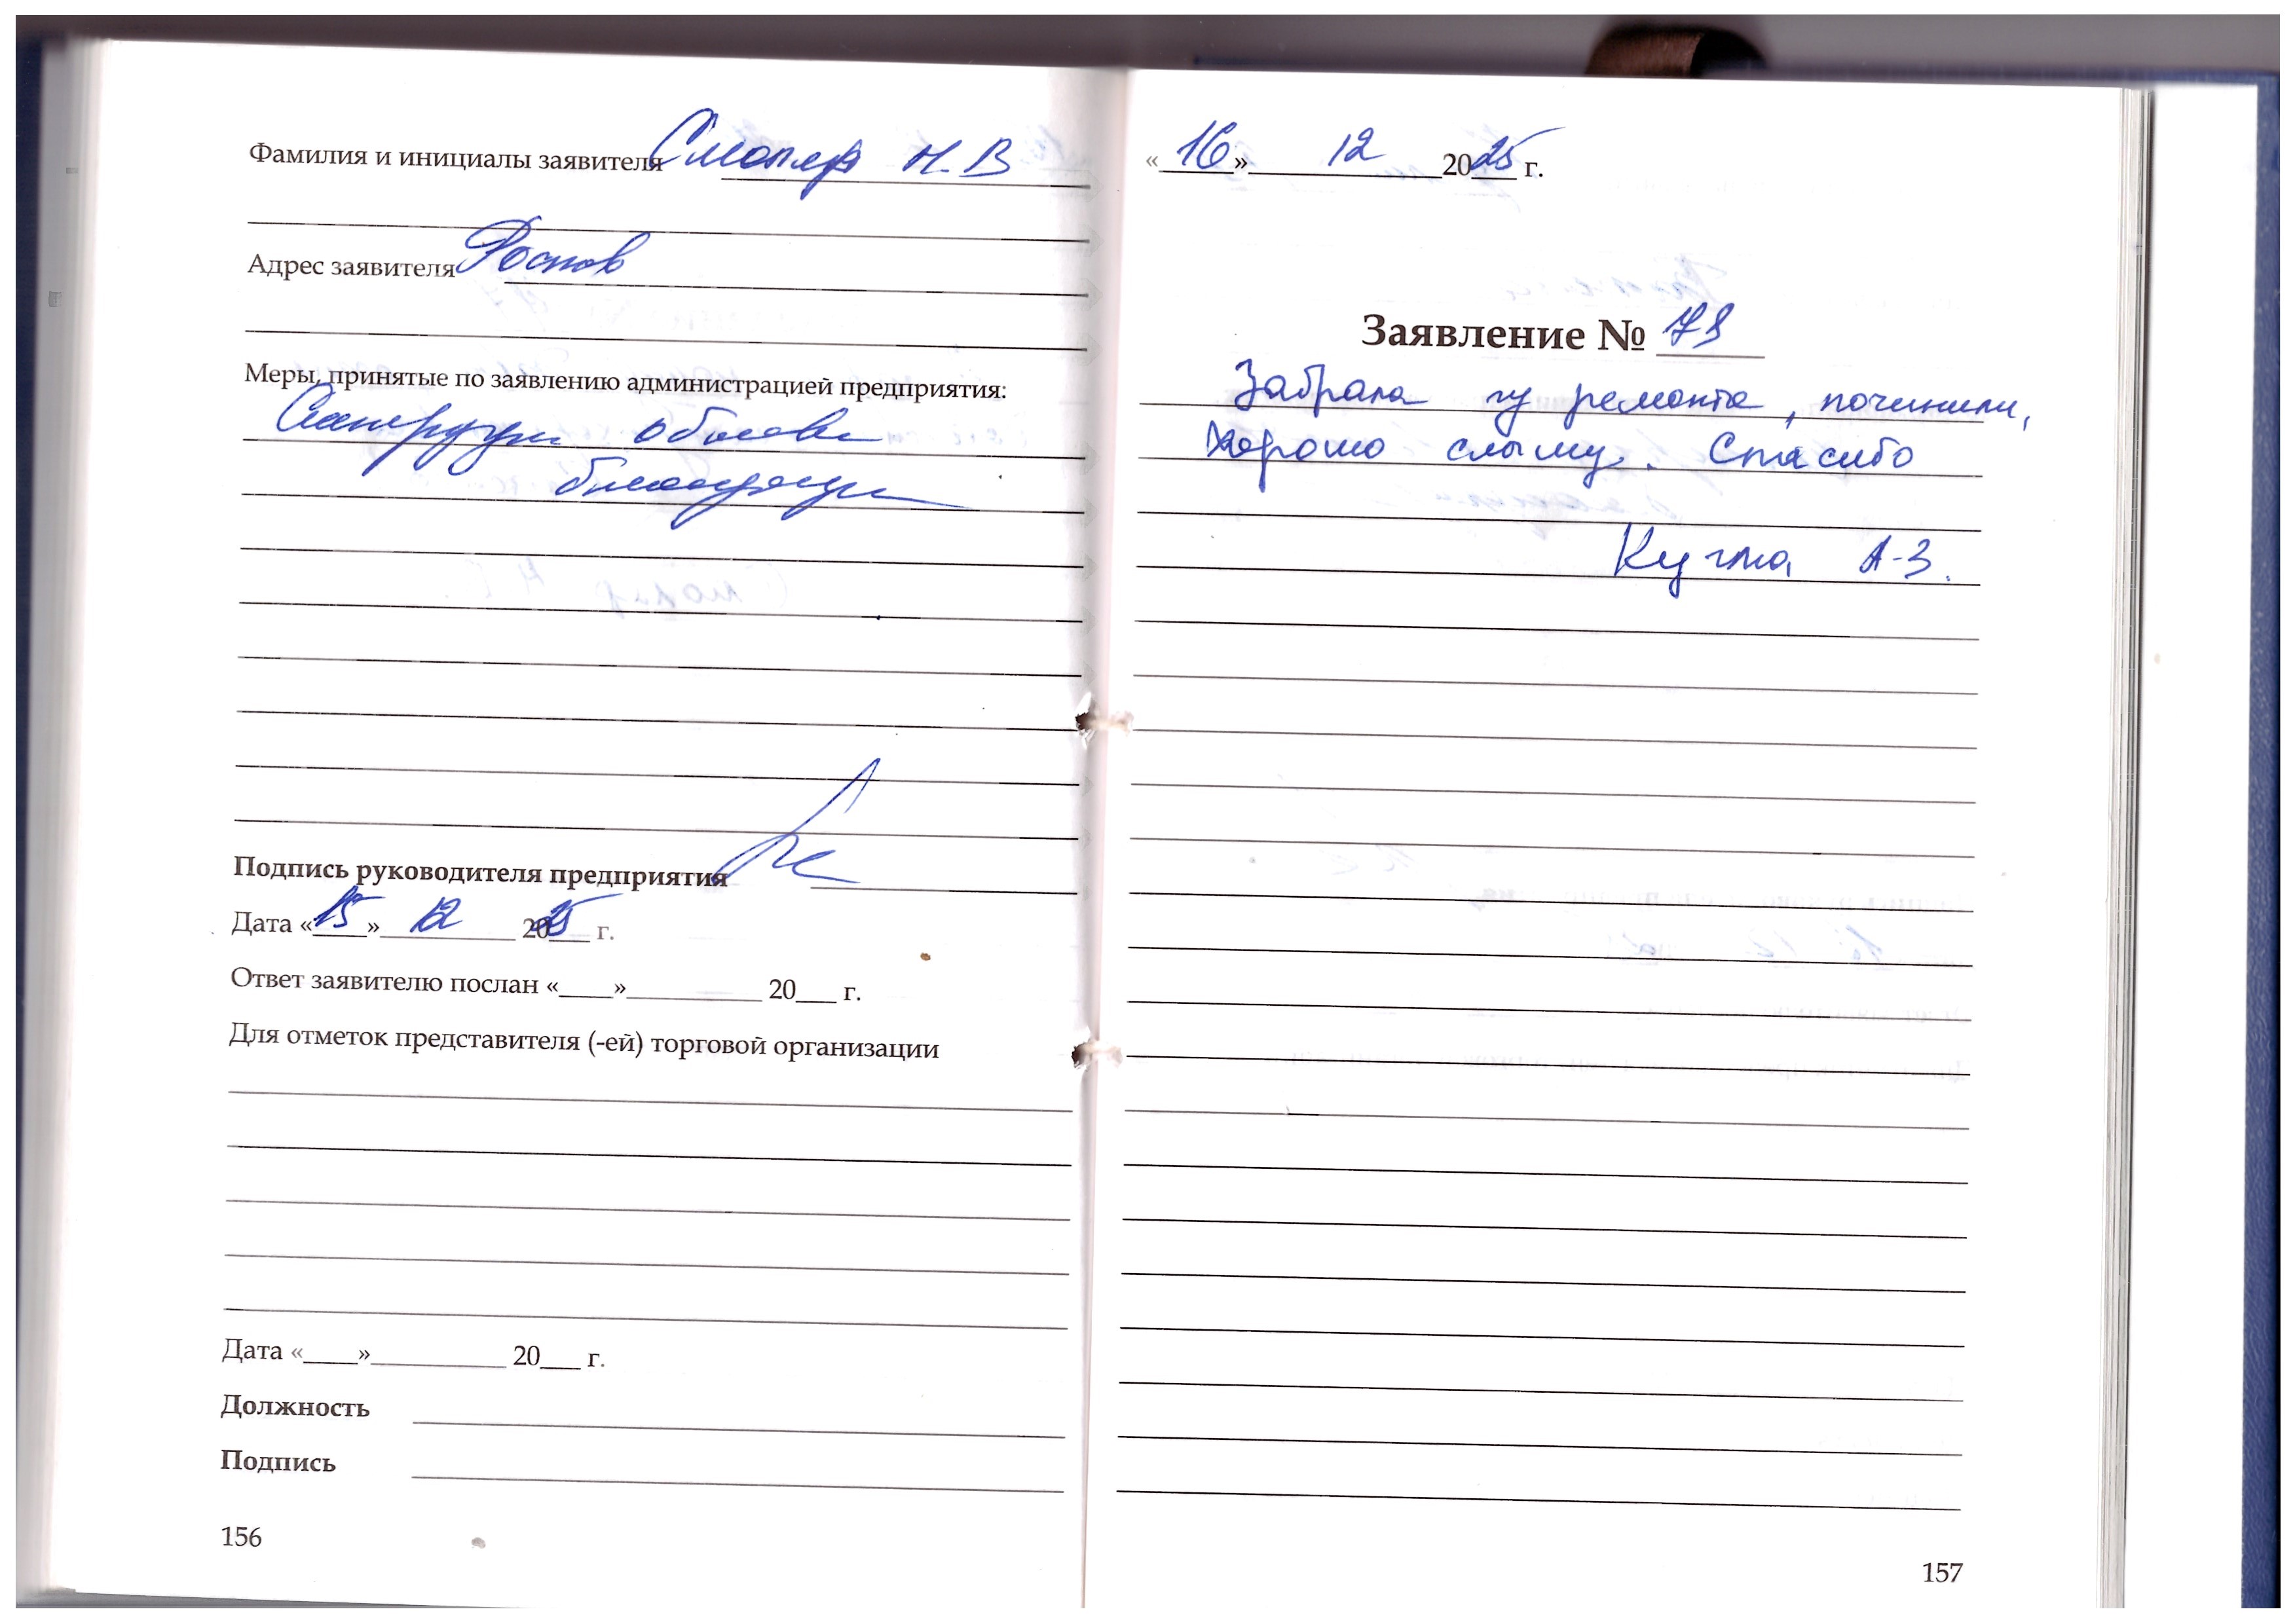 Фамилия и инициалы заявителя Смоляр Н.В
Адрес заявителя Ростов
Меры, принятые по заявлению администрацией предприятия:
Подпись руководителя предприятия
Дата «15» 12 2025 г.
Ответ заявителю послан «____»__________ 20___ г.
Для отметок представителя (-ей) торговой организации
Дата «____»__________ 20___ г.
Должность
Подпись
156
«16» 12 2025 г.
Заявление №
Забрала из ремонта, починили,
хорошо слышу. Спасибо
Кучма А.З.
157